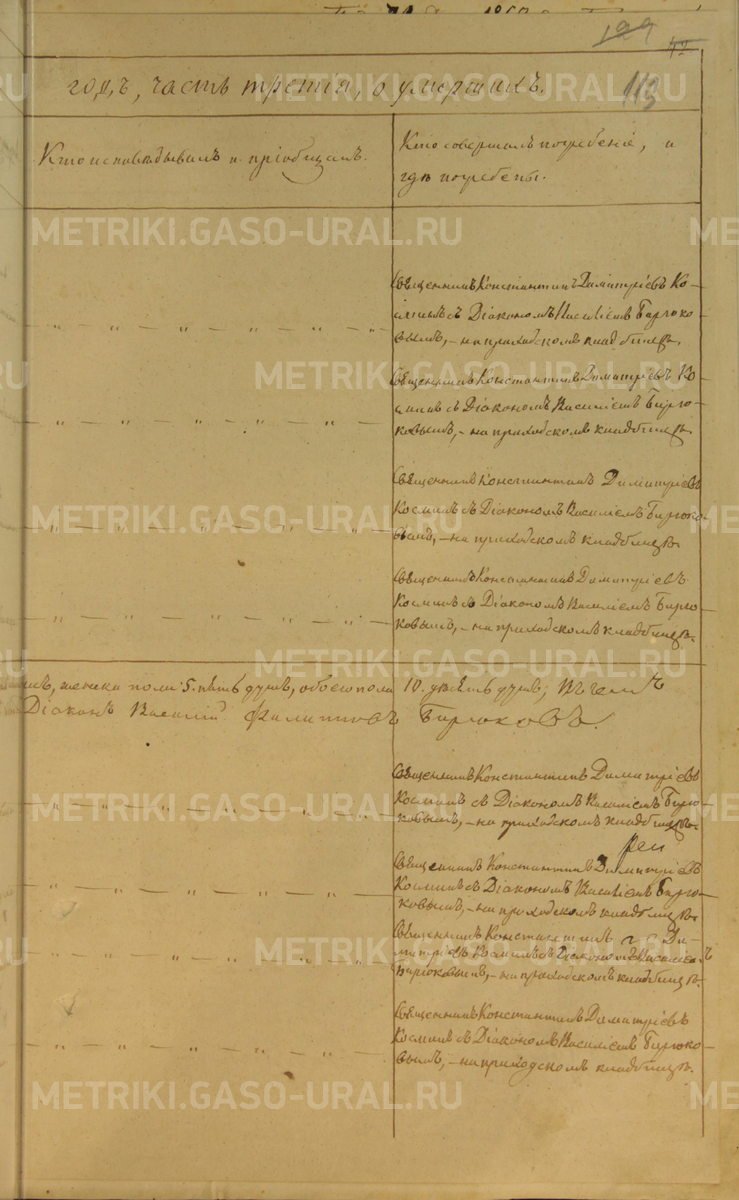 199
113
годъ, часть третія, о умершихъ.
Кто исповѣдывалъ и пріобщалъ.
Кто совершалъ погребеніе, и
гдѣ погребены.
METRIKI.GASO-URAL.RU
Священникъ Константинъ Димитріевъ Ко-
сминъ съ Діакономъ Василіемъ Бирюко-
вымъ, – на приходскомъ кладбищѣ.
Священникъ Константинъ Димитріевъ Ко-
сминъ съ Діакономъ Василіемъ Бирю-
ковымъ, – на приходскомъ кладбищѣ.
Священникъ Константинъ Димитріевъ
Косминъ съ Діакономъ Василіемъ Бирюко-
вымъ, – на приходскомъ кладбищѣ.
Священникъ Константинъ Димитріевъ
Косминъ съ Діакономъ Василіемъ Бирю-
ковымъ, – на приходскомъ кладбищѣ.
женска пола 5. пять душъ, обоего пола 10. душъ;
Діаконъ Василій Филиповъ Бирюковъ.
Священникъ Константинъ Димитріевъ
Косминъ съ Діакономъ Василіемъ Бирю-
ковымъ, – на приходскомъ кладбищѣ.
Священникъ Константинъ Димитріевъ
Косминъ съ Діакономъ Василіемъ Бирю-
ковымъ, – на приходскомъ кладбищѣ.
Священникъ Константинъ Ди-
митріевъ Косминъ съ Діакономъ Василіемъ
Бирюковымъ, – на приходскомъ кладбищѣ.
Священникъ Константинъ Димитріевъ
Косминъ съ Діакономъ Василіемъ Бирюко-
вымъ, – на приходскомъ кладбищѣ.